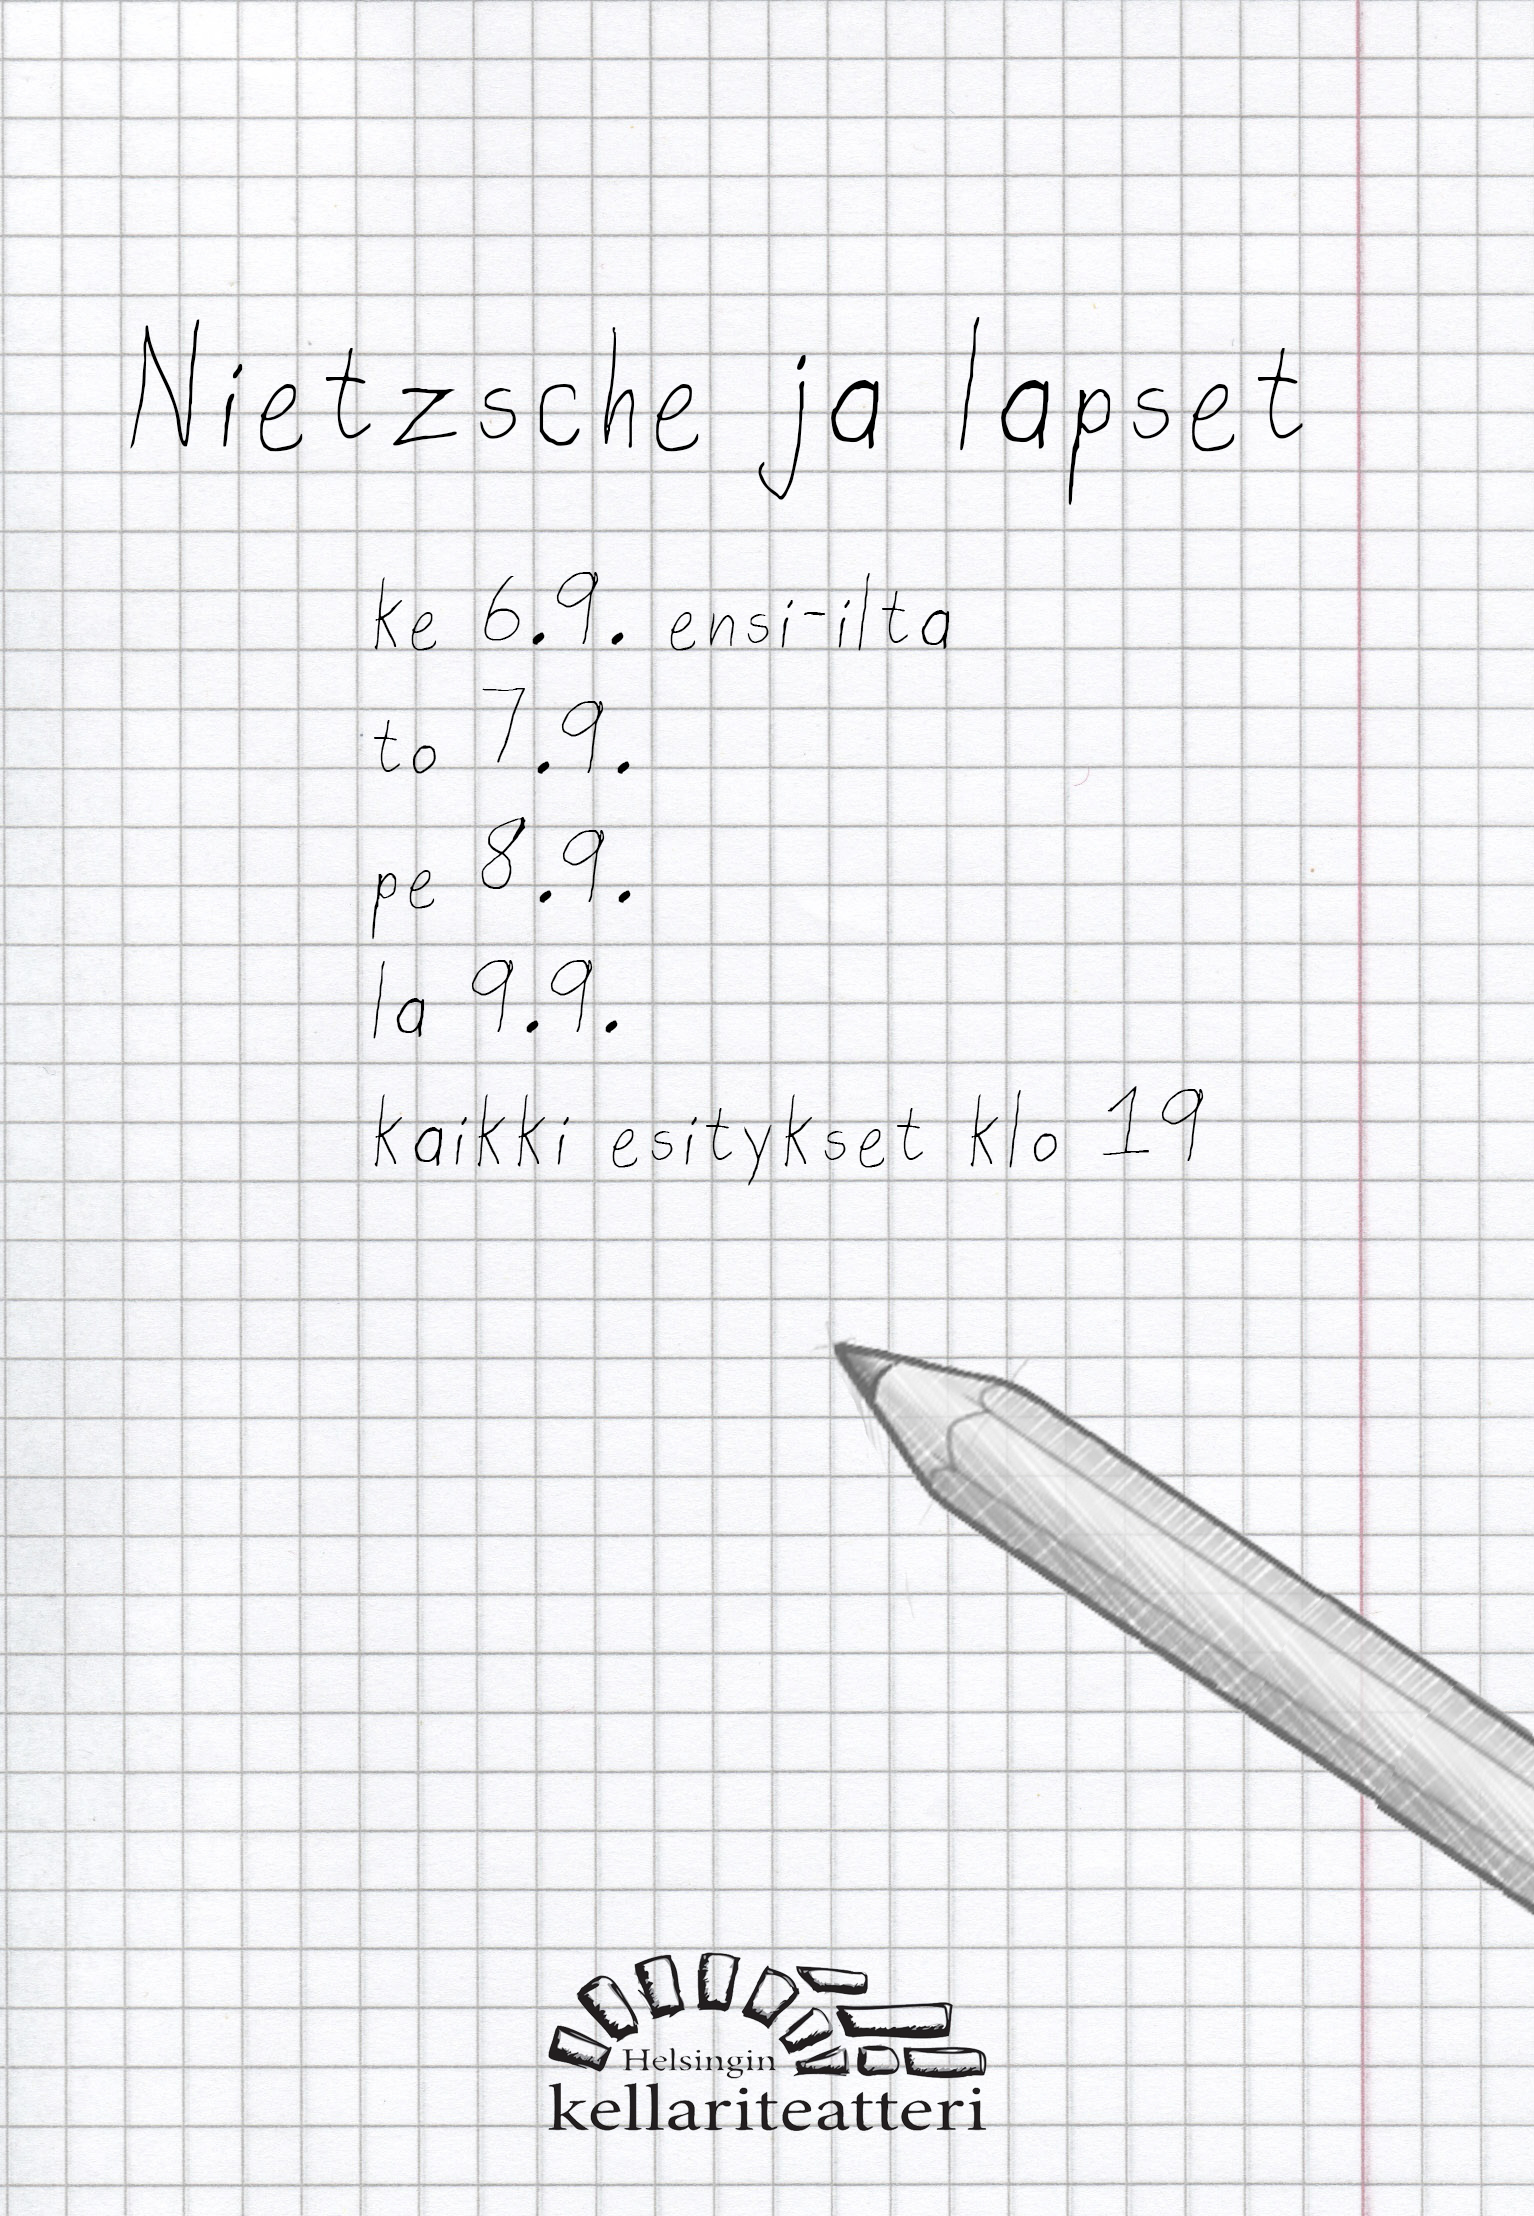 Nietzsche ja lapset
ke 6.9. ensi-ilta
to 7.9.
pe 8.9.
la 9.9.
kaikki esitykset klo 19
Helsingin
kellariteatteri